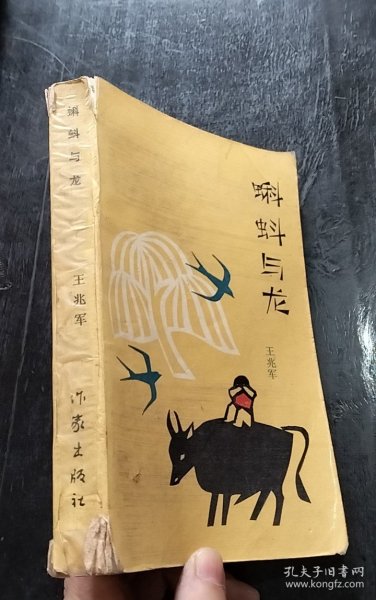 蝌蚪与龙
王兆军
作家出版社
蝌蚪与龙
王兆军
孔夫子旧书网
www.kongfz.com